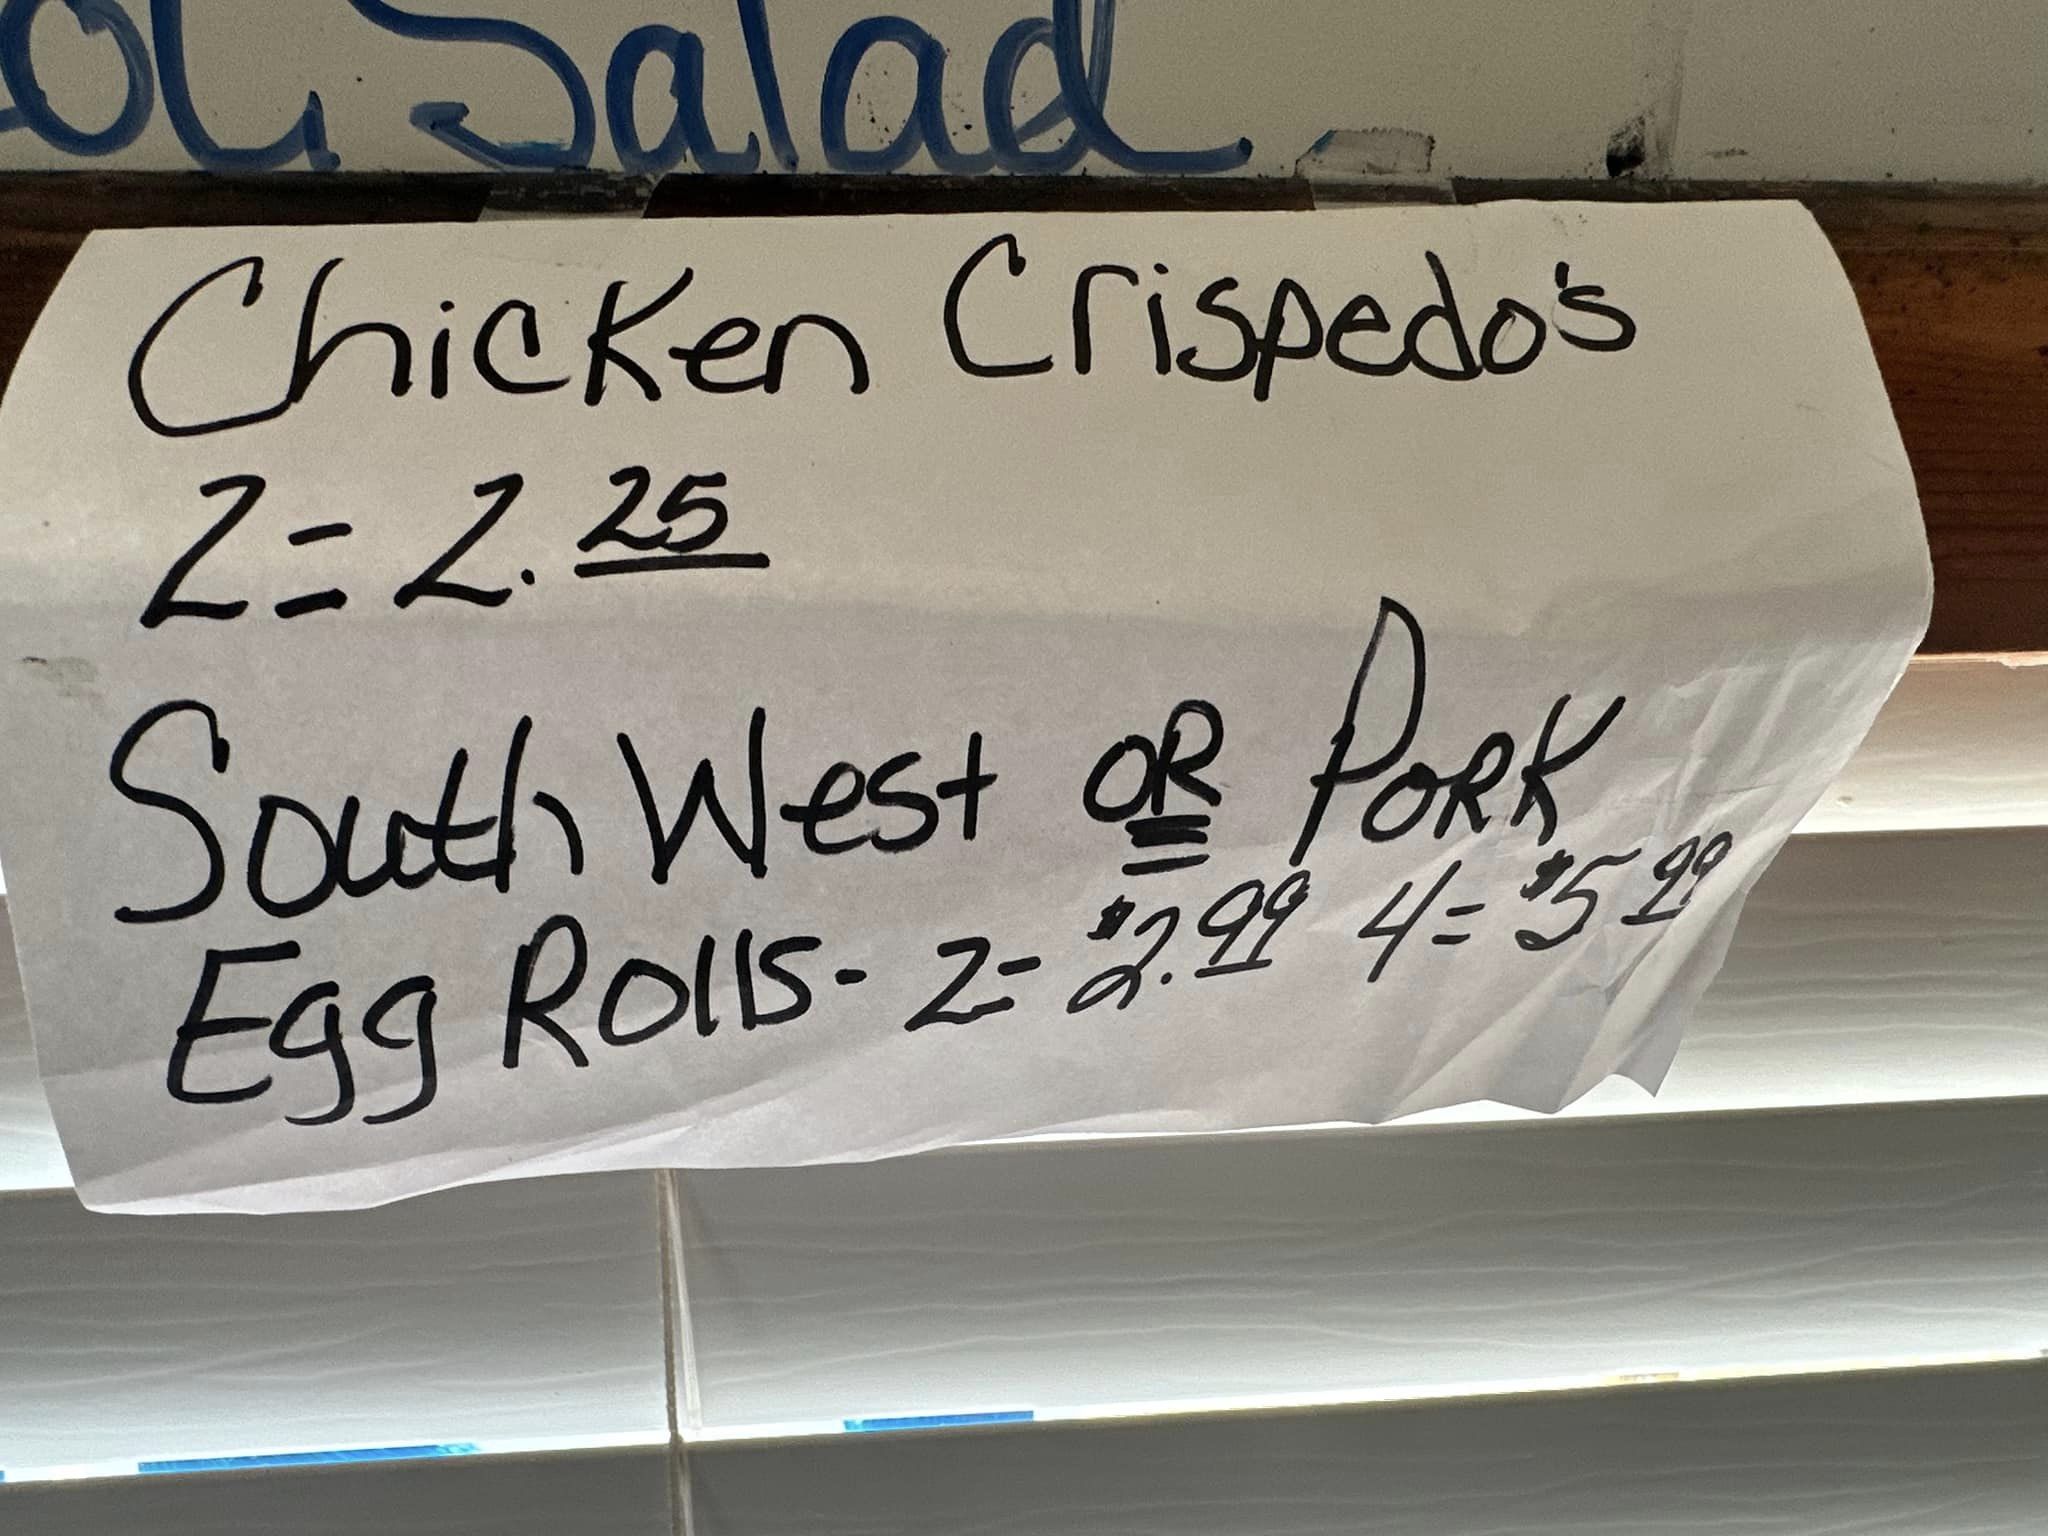 Salad
Chicken Crispedo's
2=2.25
South West OR Pork
Egg Rolls- 2= $2.99 4= $5 99